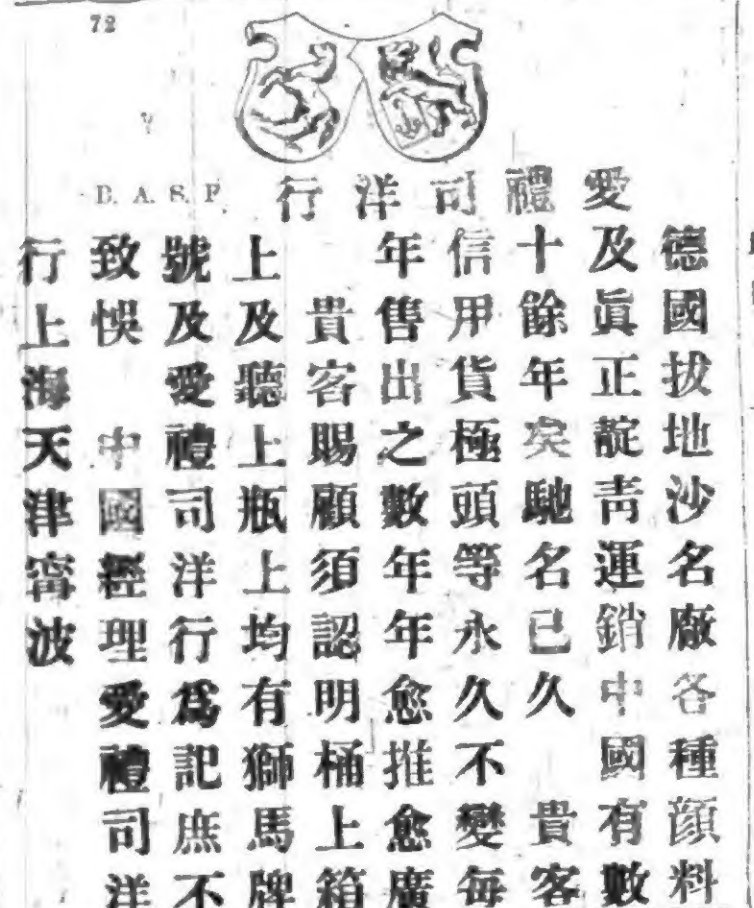 72
B. A. S. F.
愛禮司洋行
德國拔地沙名廠各種顏料
及眞正靛青運銷中國有數
十餘年矣馳名已久　貴客
信用貨極頭等永久不變每
年售出之數年年愈推愈廣
貴客賜顧須認明桶上箱
上及聽上瓶上均有獅馬牌
號及愛禮司洋行爲記庶不
致悞　中國經理愛禮司洋
行上海天津甯波